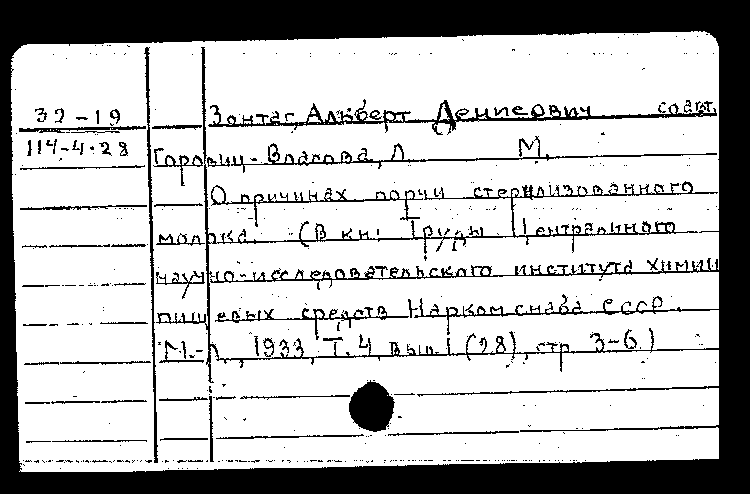 32-19 Зонтаг, Алкберт Денисович соавт.
114-4.28 Горовиц-Власова, Л. М.
О причинах порчи стерилизованного
молока. (В кн: Труды Централиного
научно-исследовательского института химии
пищевых средств Наркомснаба СССР.
М.-Л., 1933, Т. 4, вып. 1 (28), стр. 3-6)